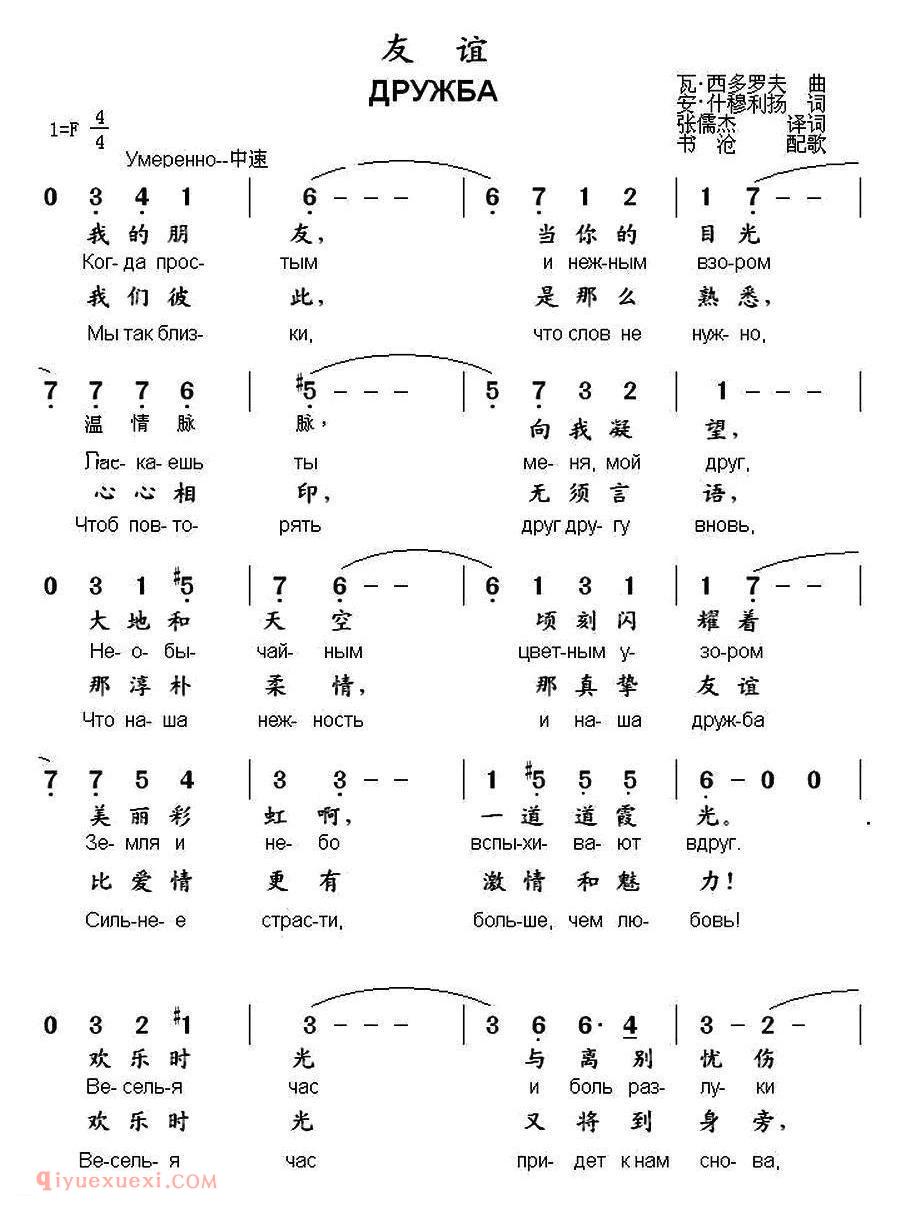 友 谊
ДРУЖБА
瓦·西多罗夫 曲
安·什穆利扬 词
张儒杰 译词
书 沧 配歌
1=F 4/4
Умеренно--中速
0 3 4 1 | 6 - - - | 6 7 1 2 | 1 7 - - |
我 的 朋 友, 当 你 的 目 光
Ког- да прос- тым и неж-ным взо-ром
我 们 彼 此, 是 那 么 熟 悉,
Мы так близ- ки, что слов не нуж-но,
7 7 7 6 | #5 - - - | 5 7 3 2 | 1 - - - |
温 情 脉 脉, 向 我 凝 望,
Лас- ка- ешь ты ме- ня, мой друг,
心 心 相 印, 无 须 言 语,
Чтоб пов-то- рять друг дру- гу вновь,
0 3 1 #5 | 7 6 - - | 6 1 3 1 | 1 7 - - |
大 地 和 天 空 顷 刻 闪 耀 着
Не- о- бы- чай- ным цвет-ным у- зо-ром
那 淳 朴 柔 情, 那 真 挚 友 谊
Что на- ша неж- ность и на- ша друж-ба
7 7 5 4 | 3 3 - - | 1 #5 5 5 | 6 - 0 0 |
美 丽 彩 虹 啊, 一 道 道 霞 光。 .
Зе- мля и не- бо вспы-хи- ва- ют вдруг.
比 爱 情 更 有 激 情 和 魅 力!
Силь-не- е страс-ти, боль-ше, чем лю- бовь!
0 3 2 #1 | 3 - - - | 3 6 6· 4 | 3 - 2 - |
欢 乐 时 光 与 离 别 忧 伤
Ве- сель-я час и боль раз- лу- ки
欢 乐 时 光 又 将 到 身 旁,
Ве-сель- я час при- дет к нам сно- ва,
qiyuexuexi.com